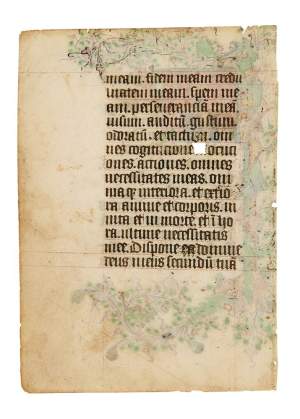 meam. fidem meam credu
litatem meam. spem me
am. perseueranciā meā
uisum. auditū. gustum.
odoratū. et tactum. om
nes cogitationes locuti
ones. actiones. omnes
necessitates meas. om
nia q̄ interiora. et exterio
ra anime et corporis. in
uita et in morte. et ī ho
ra. ultime necessitatis
mee. Dispone ea domine
deus meus secundū tuā